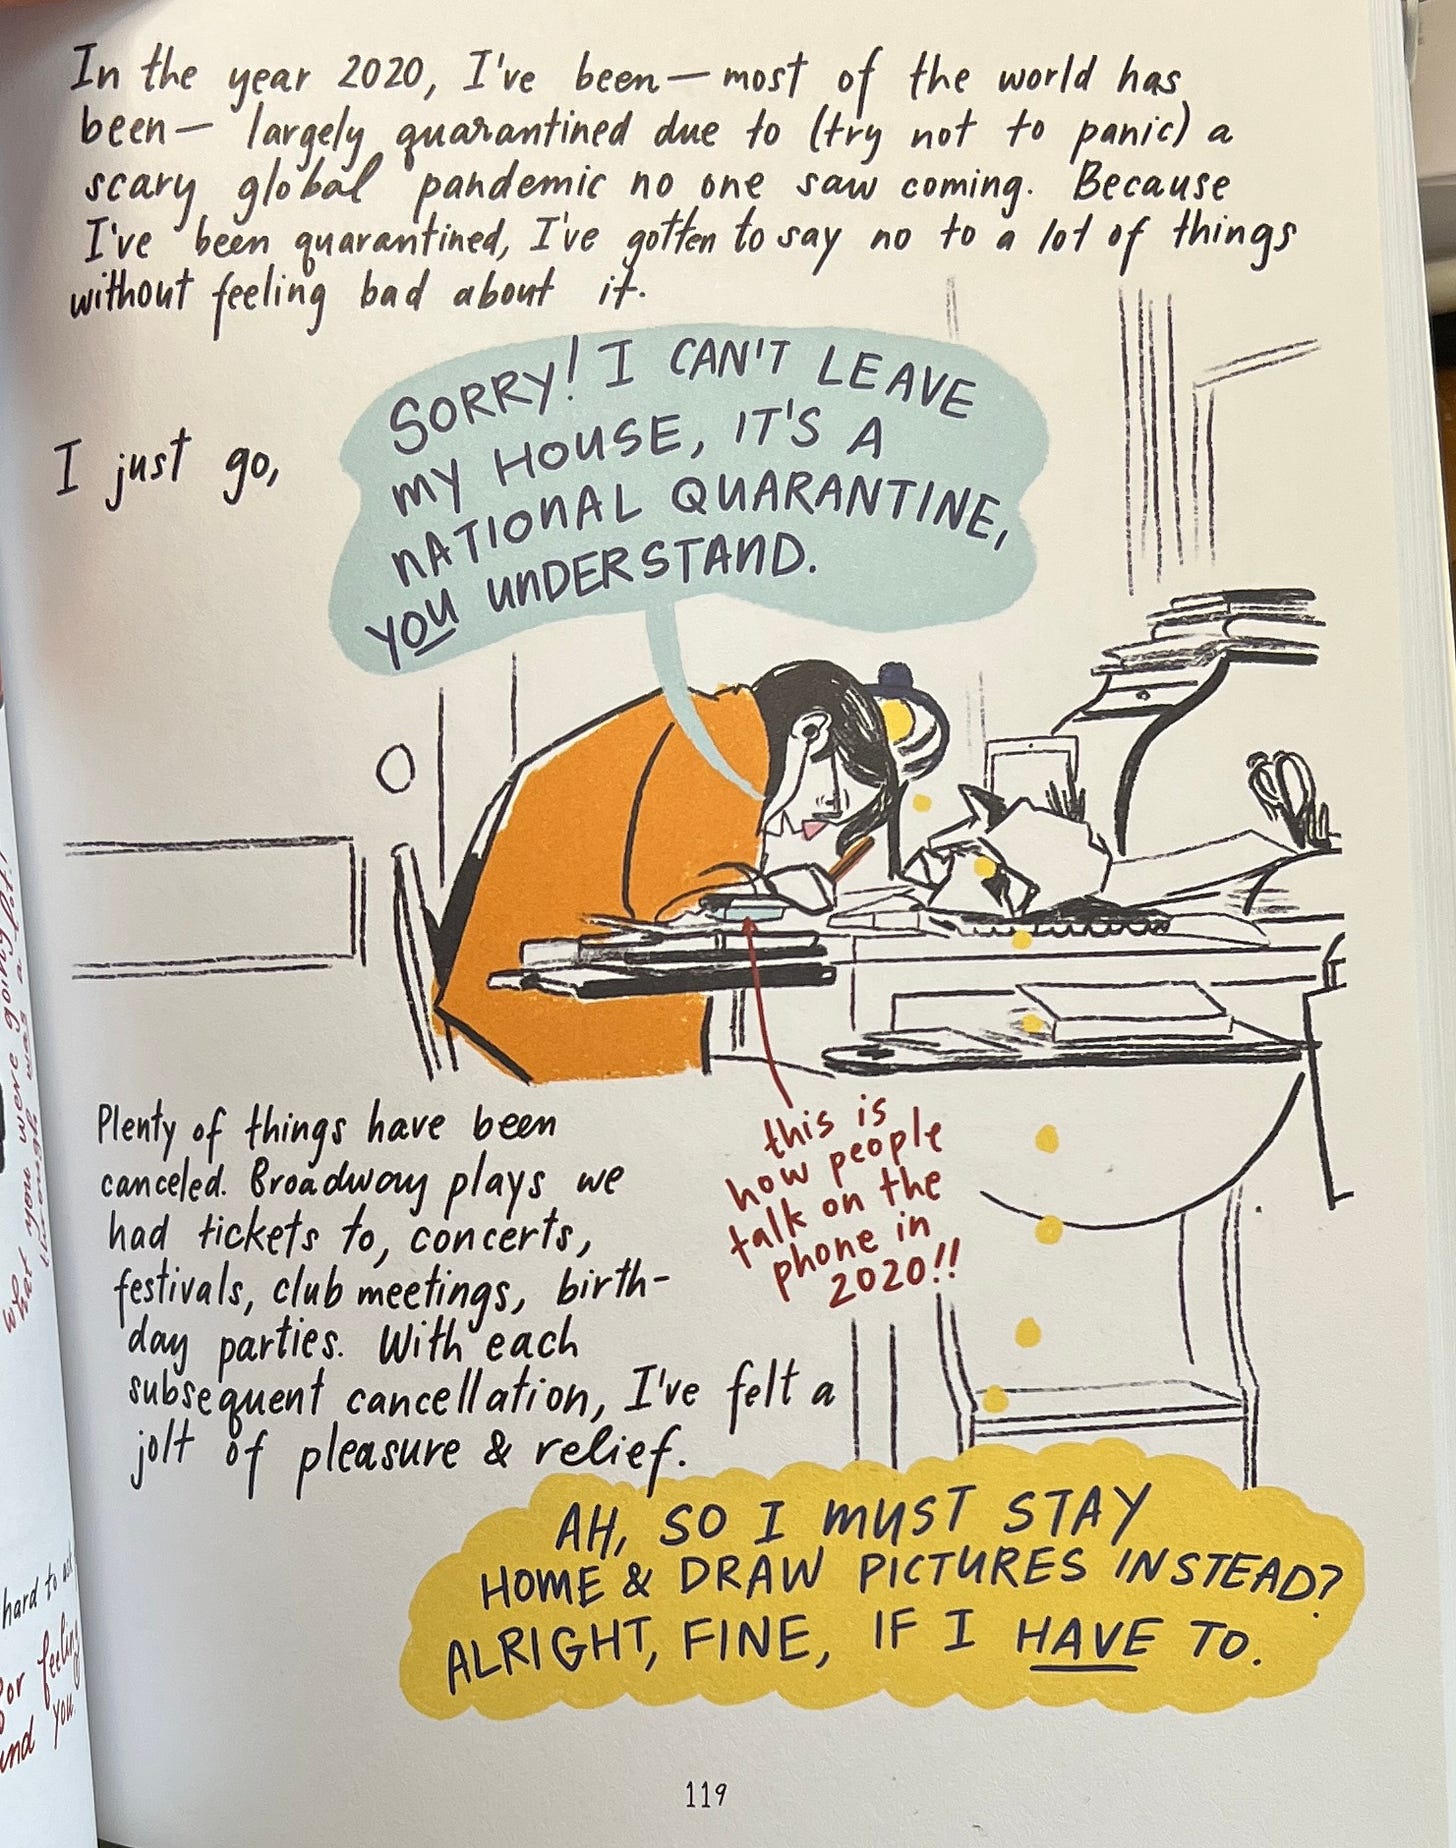 In the year 2020, I've been — most of the world has
been — largely quarantined due to (try not to panic) a
scary global pandemic no one saw coming. Because
I've been quarantined, I've gotten to say no to a lot of things
without feeling bad about it.
I just go,
SORRY! I CAN'T LEAVE
MY HOUSE, IT'S A
NATIONAL QUARANTINE,
YOU UNDERSTAND.
Plenty of things have been
canceled. Broadway plays we
had tickets to, concerts,
festivals, club meetings, birth-
day parties. With each
subsequent cancellation, I've felt a
jolt of pleasure & relief.
this is
how people
talk on the
phone in
2020!!
AH, SO I MUST STAY
HOME & DRAW PICTURES INSTEAD?
ALRIGHT, FINE, IF I HAVE TO.
119
what now were going
was a
hard to
for feeling
you.